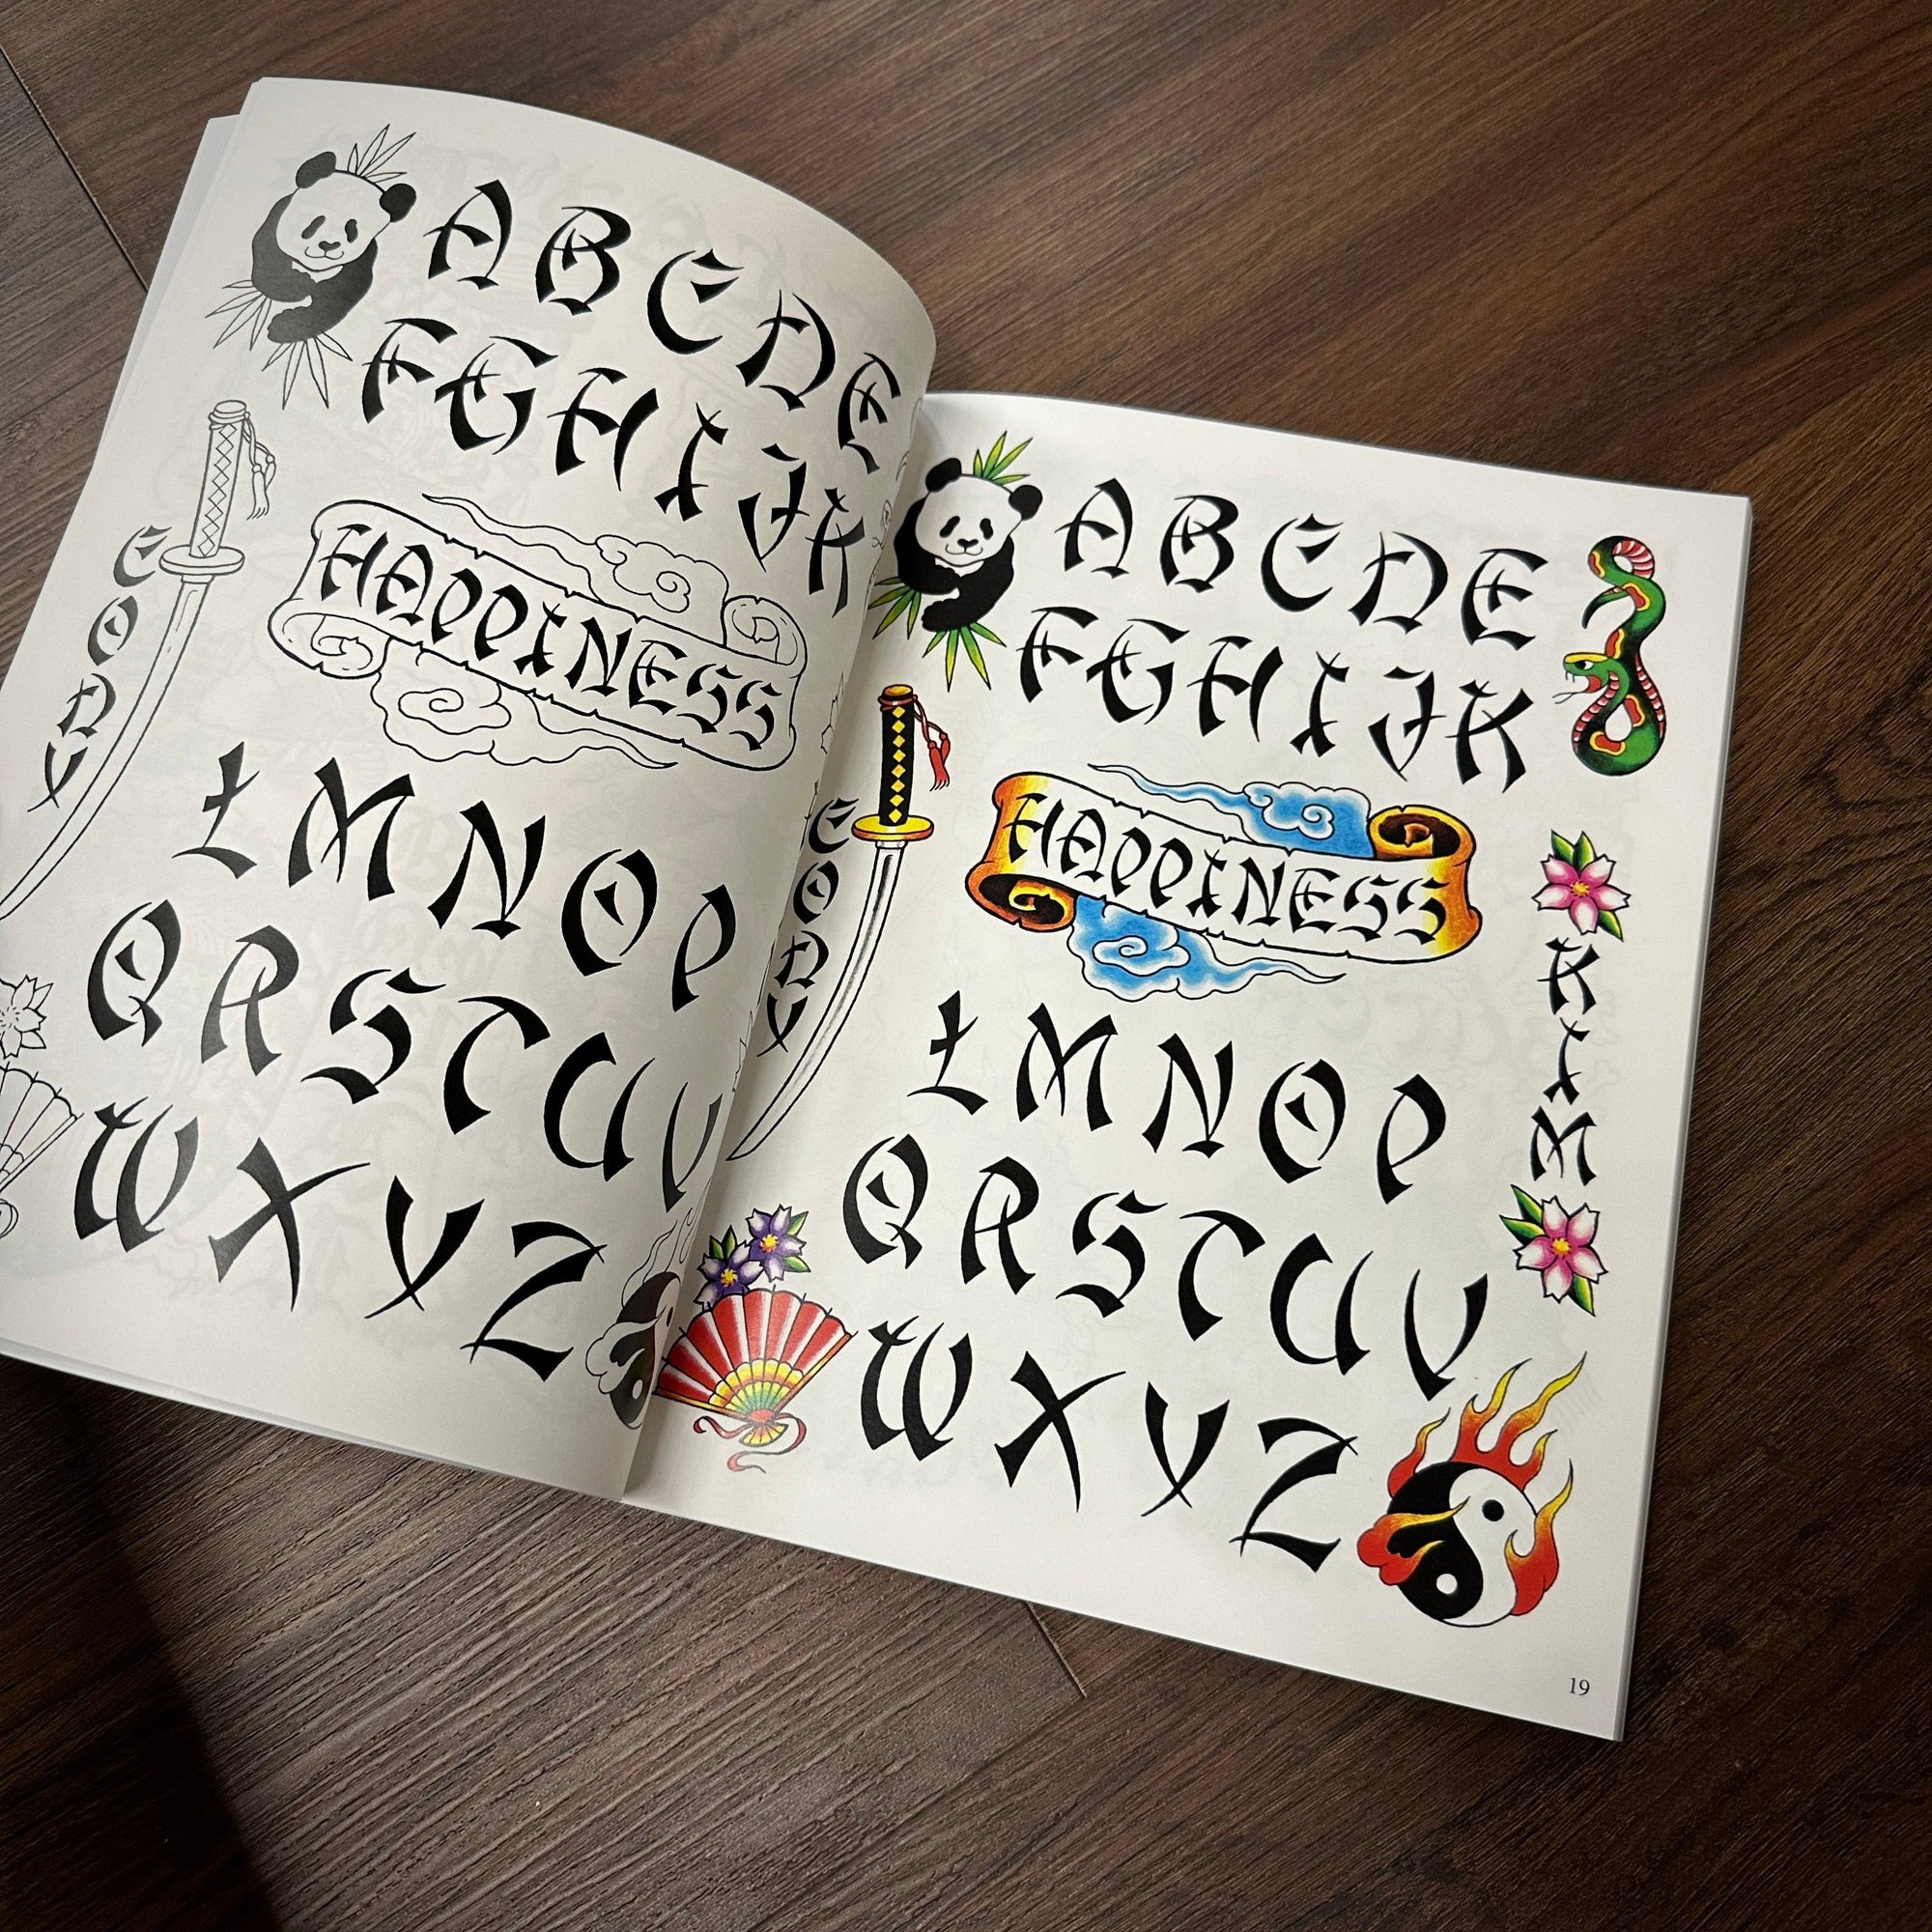 ABCDE
FGHIJK
HAPPINESS
CODY
LMNOP
QRSTUV
WXYZ
ABCDE
FGHIJK
HAPPINESS
CODY
KIM
LMNOP
QRSTUV
WXYZ
19